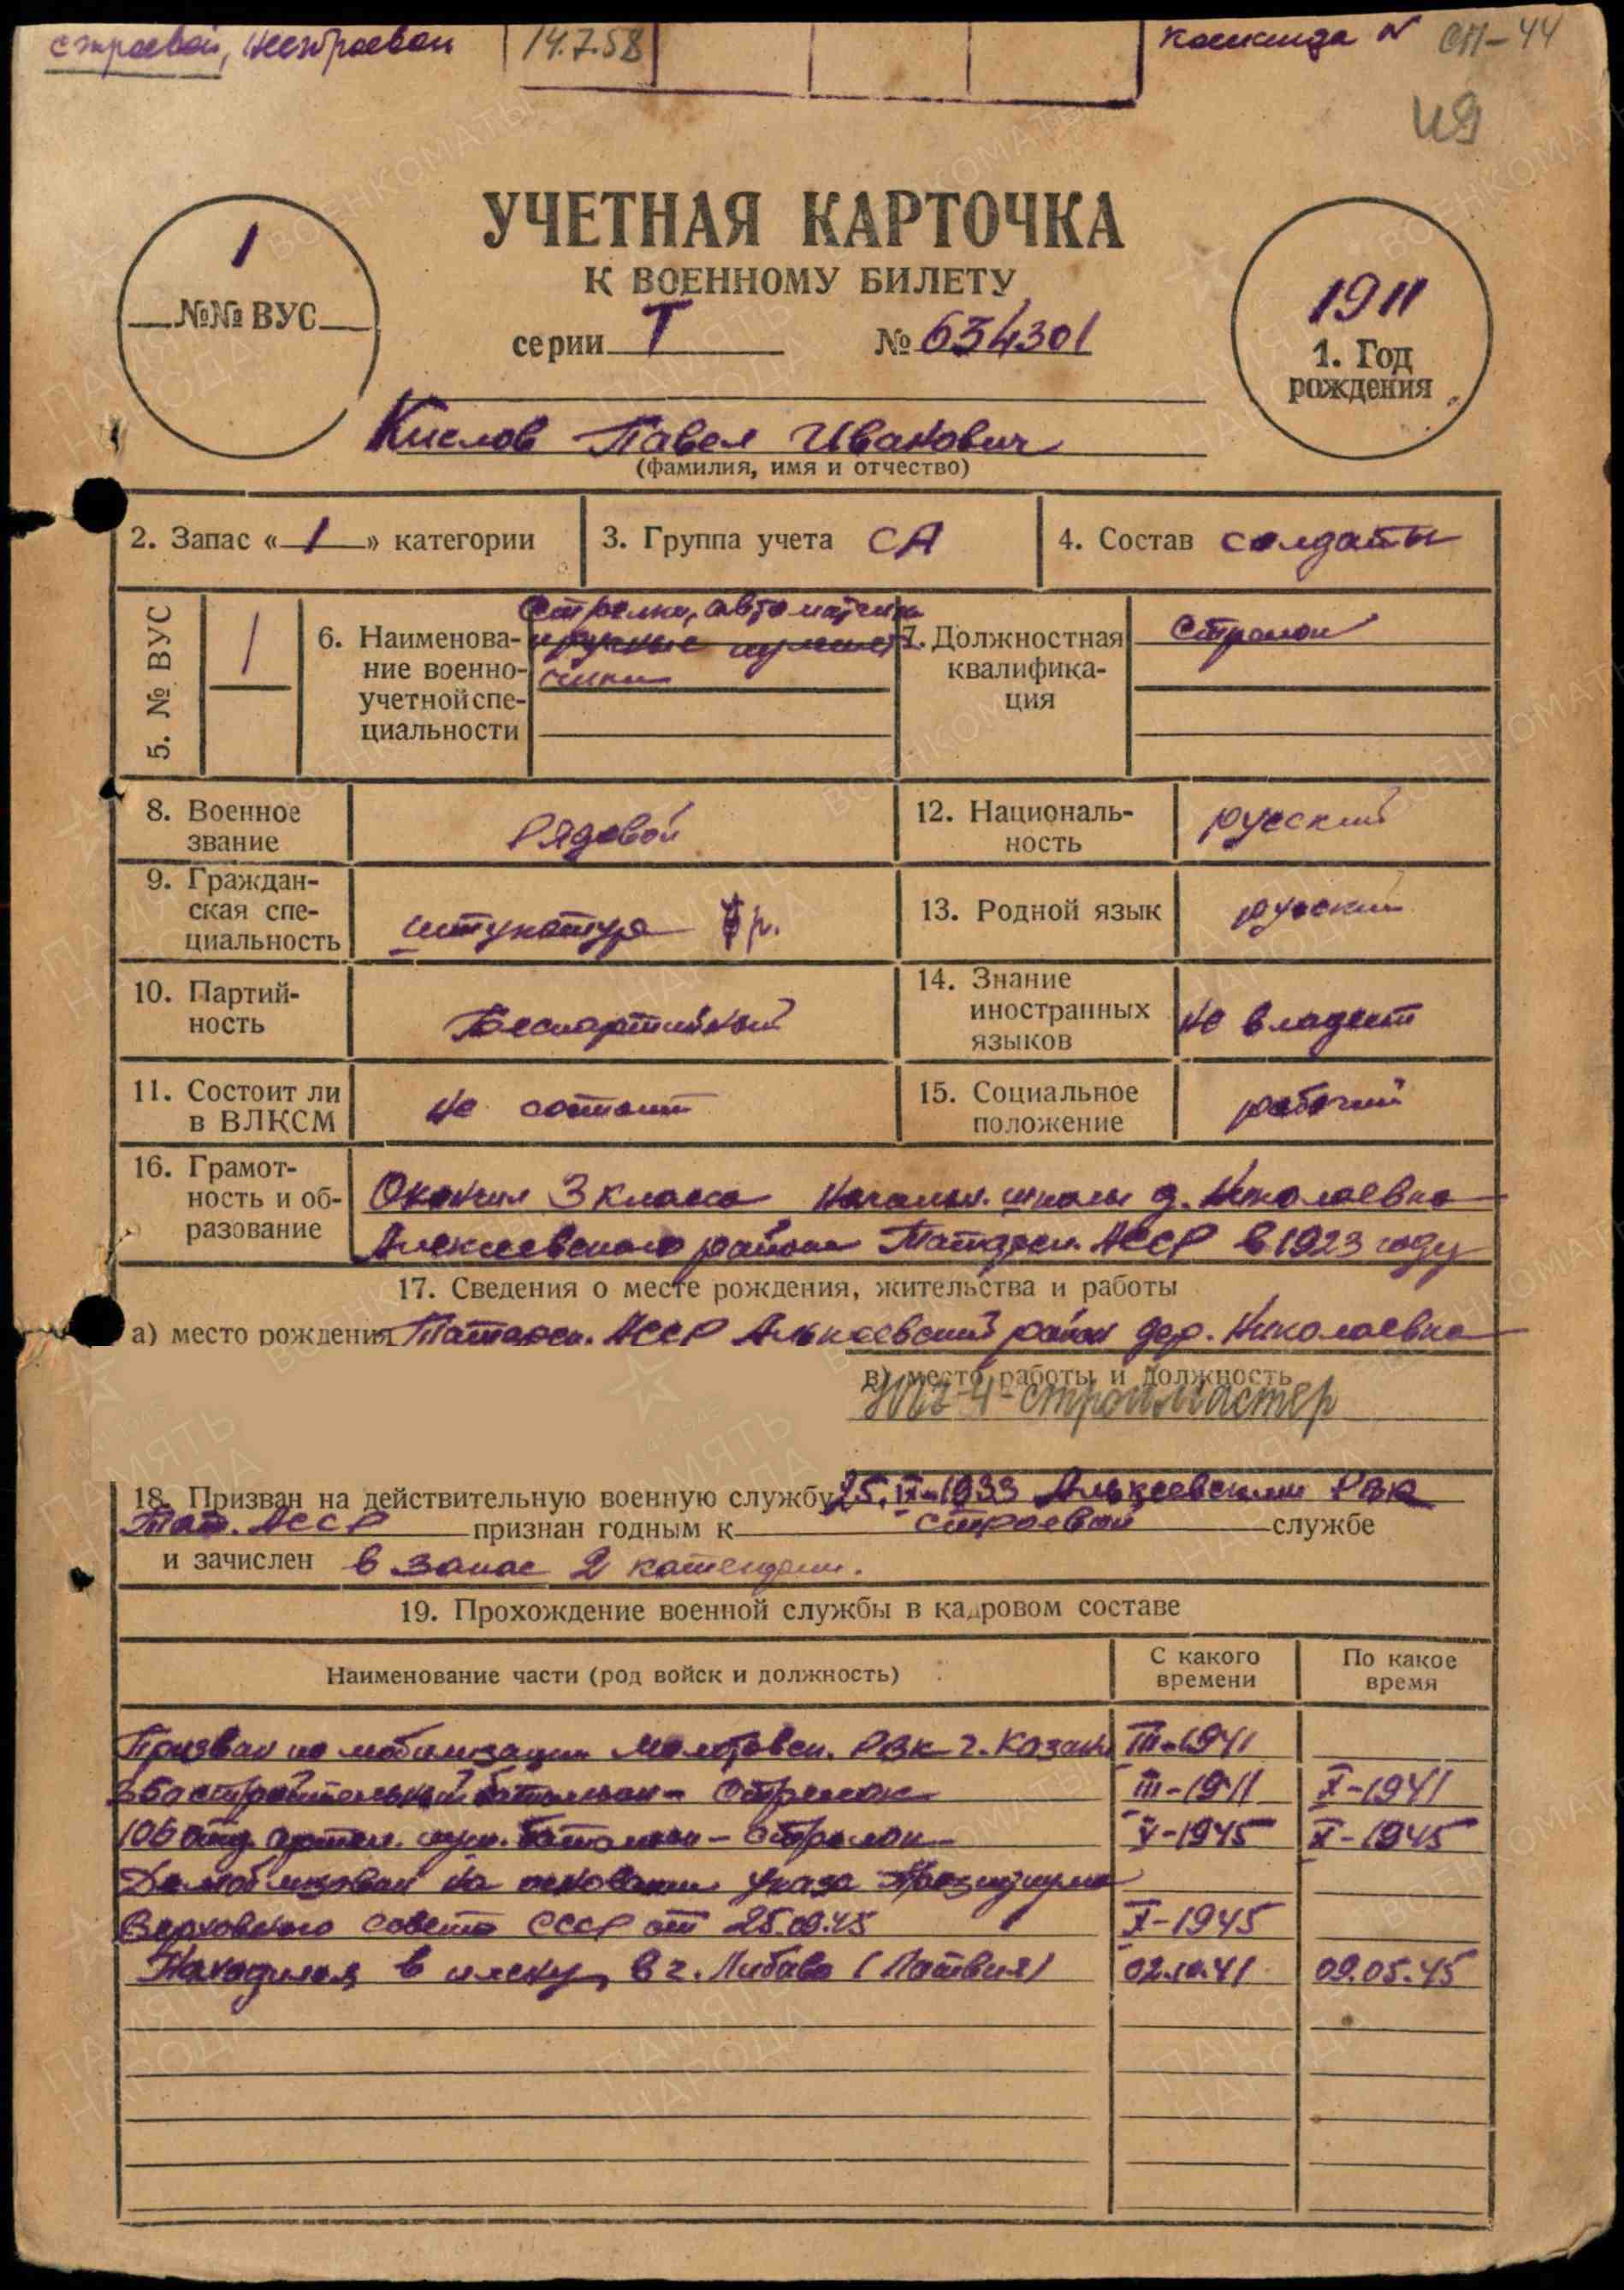 строевой, нестроевой 14.7.58 команда № ОП-44
49
УЧЕТНАЯ КАРТОЧКА
К ВОЕННОМУ БИЛЕТУ
1
№№ ВУС
серии Т № 634301
1911
1. Год рождения
Кислов Павел Иванович
(фамилия, имя и отчество)
2. Запас « 1 » категории
3. Группа учета СА
4. Состав солдаты
5. № ВУС 1
6. Наименова-
ние военно-
учетной спе-
циальности
Стрелки, автоматчики
и ручные пулемет
чики
7. Должностная
квалифика-
ция
Стрелок
8. Военное
звание
Рядовой
12. Националь-
ность
русский
9. Граждан-
ская спе-
циальность
штукатура р.
13. Родной язык русский
10. Партий-
ность
Беспартийный
14. Знание
иностранных
языков
не владеет
11. Состоит ли
в ВЛКСМ
не состоит
15. Социальное
положение
рабочий
16. Грамот-
ность и об-
разование
Окончил 3 класса начальн. школы д. Николаевка
Алексеевского района Татарск. АССР в 1923 году
17. Сведения о месте рождения, жительства и работы
а) место рождения Татарск. АССР Алькеевский район дер. Николаевка
в) место работы и должность
4 - строймастер
18. Призван на действительную военную службу 25.IX-1933 Алькеевским РВК
Тат. АССР признан годным к строевой службе
и зачислен в запас 2 категории.
19. Прохождение военной службы в кадровом составе
Наименование части (род войск и должность)
С какого времени
По какое время
Призван по мобилизации Молотовск. РВК г. Казани III-1941
строительный батальон - Стрелок III-1941 X-1941
106 отд. артил. пул. батальон - стрелок V-1945 X-1945
Демобилизован на основании Указа Президиума
Верховного Совета СССР от 25.09.45 X-1945
Находился в плену, в г. Либава (Латвия) 02.10.41 09.05.45
ПАМЯТЬ НАРОДА
ВОЕНКОМАТЫ